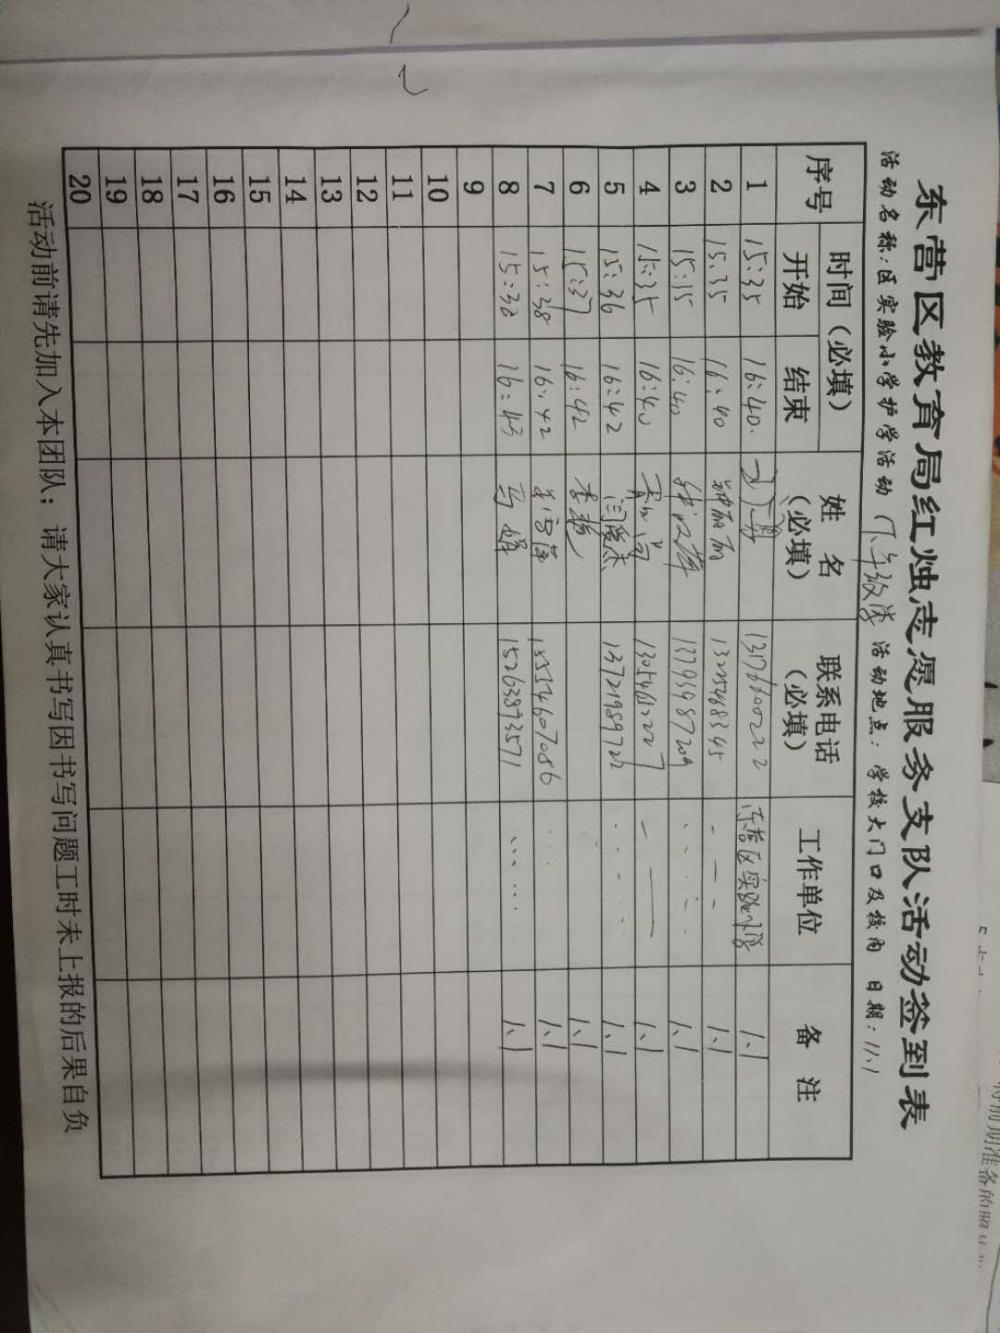 东营区教育局红烛志愿服务支队活动签到表
活动名称：区实验小学护学活动（ 活动地点：学校大门口及校内 日期：11.1
序号 时间（必填） 姓名（必填） 联系电话（必填） 工作单位 备注
开始 结束
1 15:35 16:40. 13176600222 东营区实验小学 1.1
2 15:35 16:40 钟丽丽 13225468345 1.1
3 15:15 16:40 13793987209 1.1
4 15:35 16:40 1.1
5 15:36 16:42 闫爱杰 1.1
6 15:37 16:42 李艳 1.1
7 15:38 16:42 15554607086 1.1
8 15:38 16:43 马娟 15263893571 1.1
9
10
11
12
13
14
15
16
17
18
19
20
活动前请先加入本团队；请大家认真书写因书写问题工时未上报的后果自负